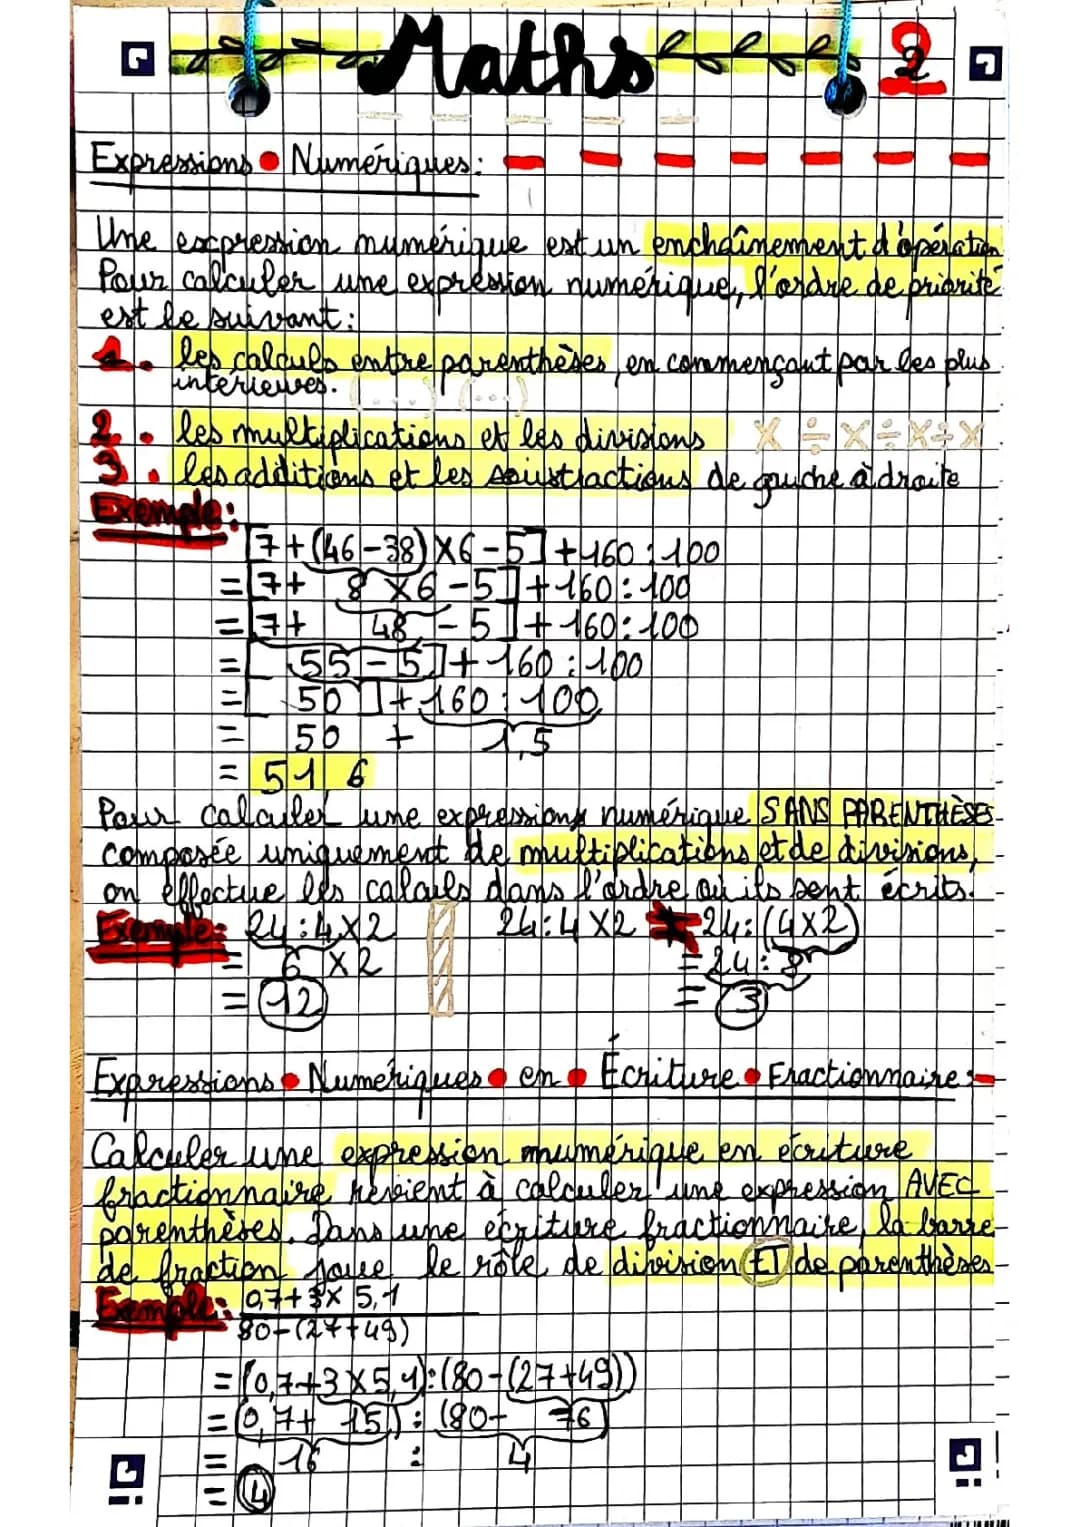 Maths 2
Expressions • Numériques:
Une expression numérique est un enchaînement d'opération
Pour calculer une expression numérique, l'ordre de priorité
est le suivant:
1. les calculs entre parenthèses, en commençant par les plus
intérieures. (...) (...)
2. les multiplications et les divisions X ÷ X ÷ X ÷ X
3. les additions et les soustractions de gauche à droite
Exemple:
[7+(46-38)×6-5]+160:100
=[7+ 8 ×6-5]+160:100
=[7+ 48 -5]+160:100
=[ 55-5]+160:100
=[ 50 ]+160:100
= 50 + 1,5
= 51 6
Pour calculer une expressions numérique SANS PARENTHÈSES
composée uniquement de multiplications et de divisions,
on effectue les calculs dans l'ordre où ils sont écrits.
Exemple: 24:4×2 24:4×2 ≠ 24:(4×2)
= 6 ×2 =24:8
= 12 = 3
Expressions • Numériques • en • Écriture • Fractionnaire:
Calculer une expression numérique en écriture
fractionnaire revient à calculer une expression AVEC
parenthèses. Dans une écriture fractionnaire, la barre
de fraction joue le rôle de division ET de parenthèses
Exemple: 0,7+3×5,1
80-(27+49)
=(0,7+3×5,1):(80-(27+49))
=(0,7+ 15,):(80- 76)
= 16 : 4
= 4